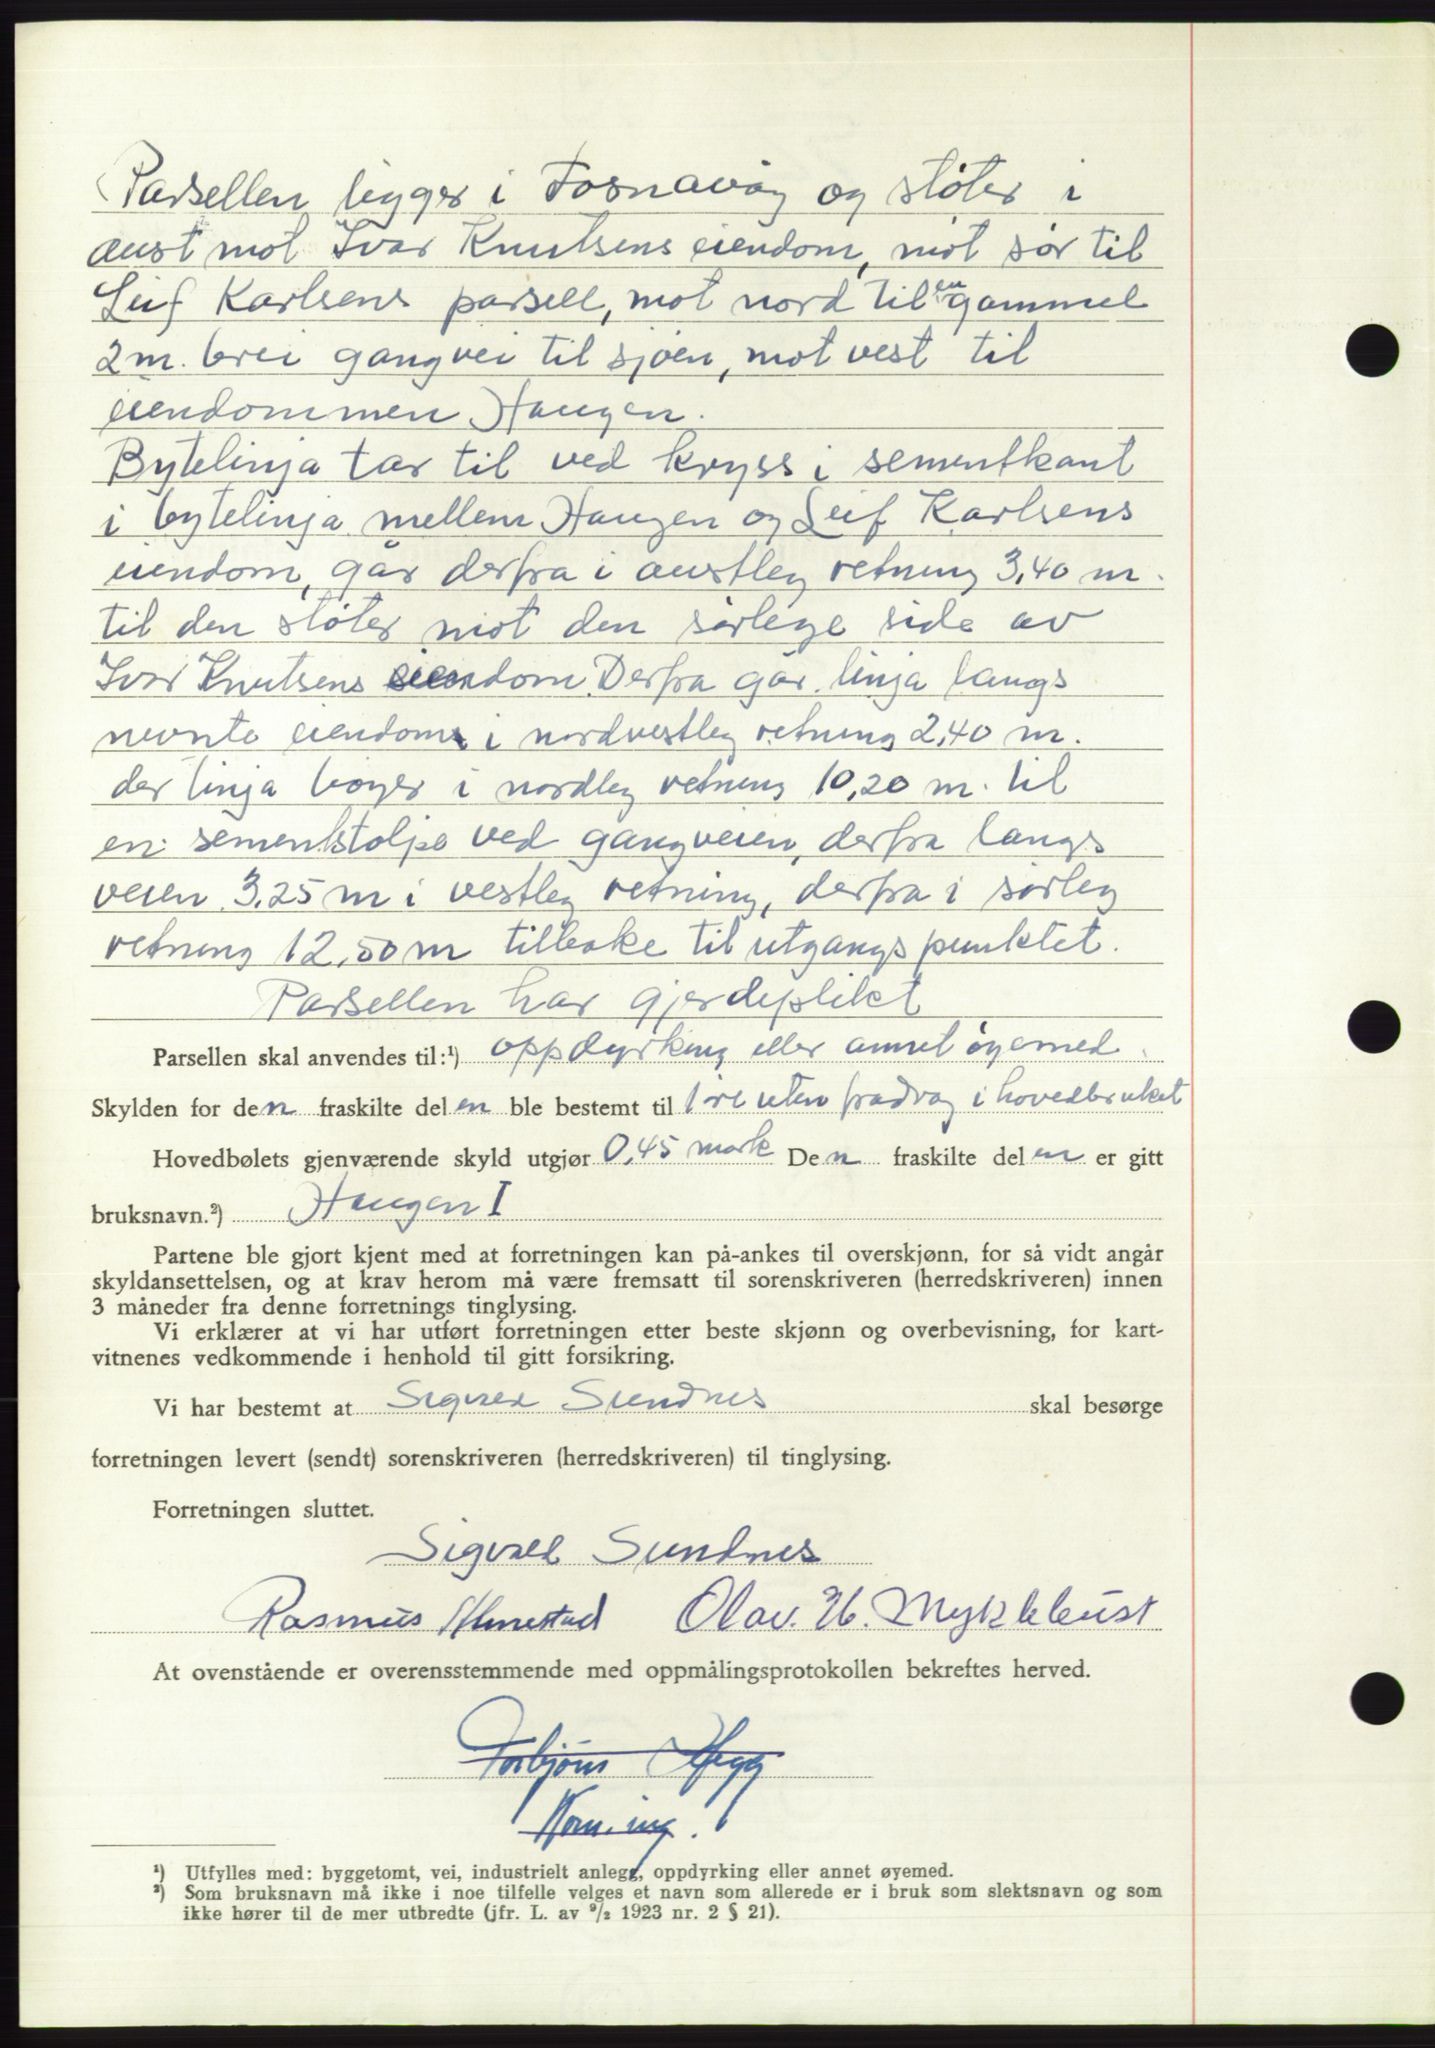 Parsellen ligger i Fosnavåg og støter i
aust mot Ivar Knutsens eiendom, mot sør til
Leif Karlsens parsell, mot nord til en gammel
2 m. brei gangvei til sjøen, mot vest til
eiendommen Haugen.
Bytelinja tar til ved kryss i sementkant
i bytelinja mellem Haugen og Leif Karlsens
eiendom, går derfra i austleg retning 3,40 m.
til den støter mot den sørlege side av
Ivar Knutsens eiendom. Derfra går linja langs
nevnte eiendom i nordvestleg retning 2,40 m.
der linja bøyer i nordleg retning 10,20 m. til
en sementstolpe ved gangveien, derfra langs
veien 3,25 m i vestleg retning, derfra i sørleg
retning 12,50 m tilbake til utgangspunktet.
Parsellen har gjerdeplikt
Parsellen skal anvendes til:¹) oppdyrking eller annet øyemed.
Skylden for den fraskilte delen ble bestemt til 1 øre uten fradrag i hovedbruket
Hovedbølets gjenværende skyld utgjør 0,45 mark Den fraskilte delen er gitt
bruksnavn.²) Haugen I
Partene ble gjort kjent med at forretningen kan på-ankes til overskjønn, for så vidt angår
skyldansettelsen, og at krav herom må være fremsatt til sorenskriveren (herredskriveren) innen
3 måneder fra denne forretnings tinglysing.
Vi erklærer at vi har utført forretningen etter beste skjønn og overbevisning, for kart-
vitnenes vedkommende i henhold til gitt forsikring.
Vi har bestemt at Sigvald Sundnes skal besørge
forretningen levert (sendt) sorenskriveren (herredskriveren) til tinglysing.
Forretningen sluttet.
Sigvald Sundnes
Rasmus Almestad Olav. H. Myklebust
At ovenstående er overensstemmende med oppmålingsprotokollen bekreftes herved.
Torbjørn Hegg
Kom. ing.
¹) Utfylles med: byggetomt, vei, industrielt anlegg, oppdyrking eller annet øyemed.
²) Som bruksnavn må ikke i noe tilfelle velges et navn som allerede er i bruk som slektsnavn og som
ikke hører til de mer utbredte (jfr. L. av ⁹/₂ 1923 nr. 2 § 21).